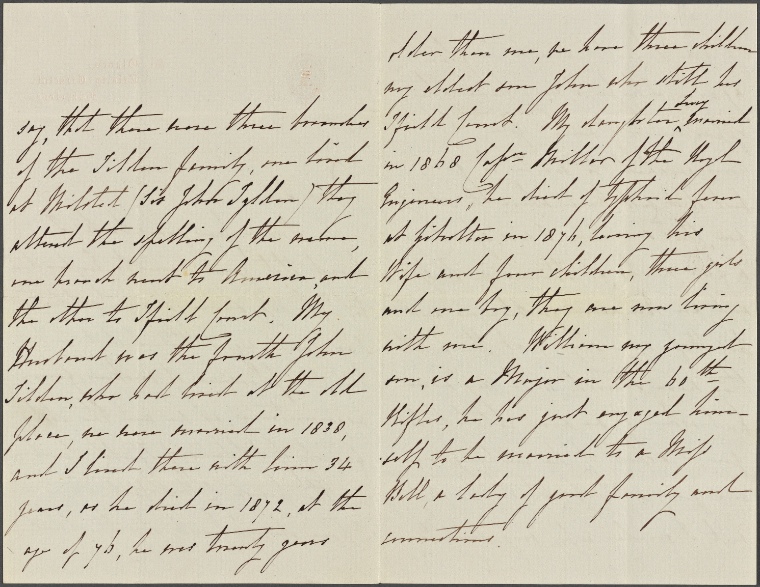 say, that there were three branches
of the Tilden family, one lived
at Milsted (Sir John Tylden) they
altered the spelling of the name,
one branch went to America, and
the other to Ifield Court. My
Husband was the fourth John
Tilden, who had lived at the old
place, we were married in 1838,
and I lived there with him 34
years, as he died in 1872, at the
age of 76, he was twenty years
older than me, we have three children
my eldest son John who still has
Ifield Court. My daughter, Lucy married
in 1868 Captn Millar of the Royl
Engineers, he died of typhoid fever
at Gibraltar in 1876, leaving his
Wife and four children, three girls
and one boy, they are now living
with me. William my youngest
son, is a Major in the 60th
Rifles, he has just engaged him-
self to be married to a Miss
Bell, a lady of good family and
connections.